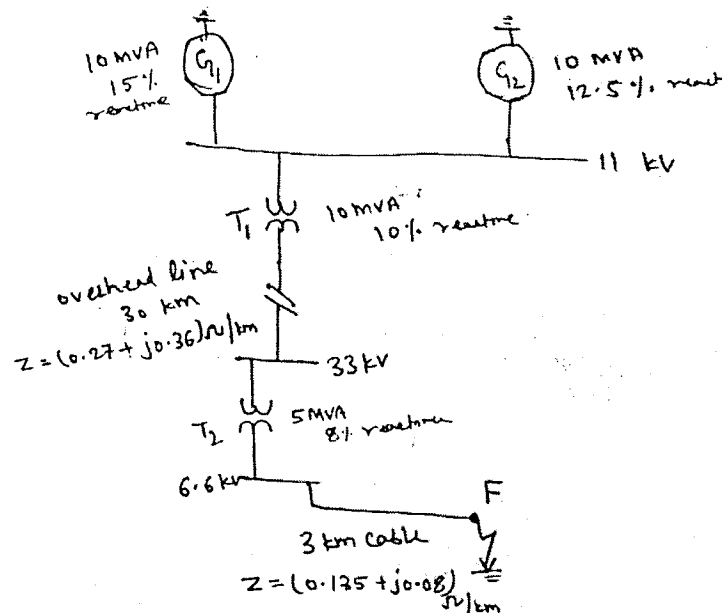 10 MVA
15%
reactance
G1
G2
10 MVA
12.5% react
11 kV
T1
10 MVA
10% reactance
overhead line
30 km
Z = (0.27 + j0.36) Ω/km
33 kV
T2
5 MVA
8% reactance
6.6 kV
F
3 km cable
Z = (0.135 + j0.08)
Ω/km